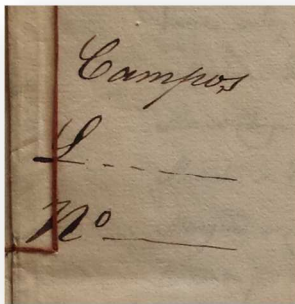 Campos
L. - - - ——
Nº ———